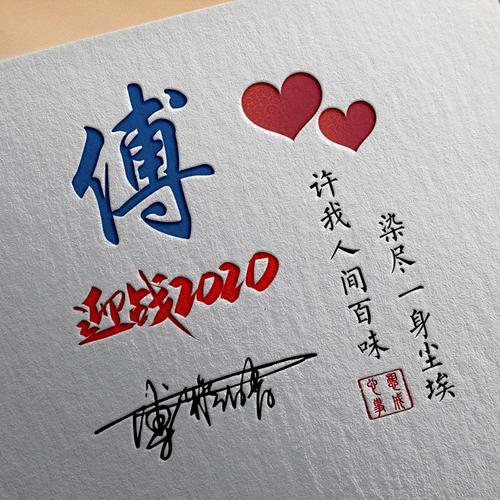 傅
迎战2020
染尽一身尘埃
许我人间百味
心想事成